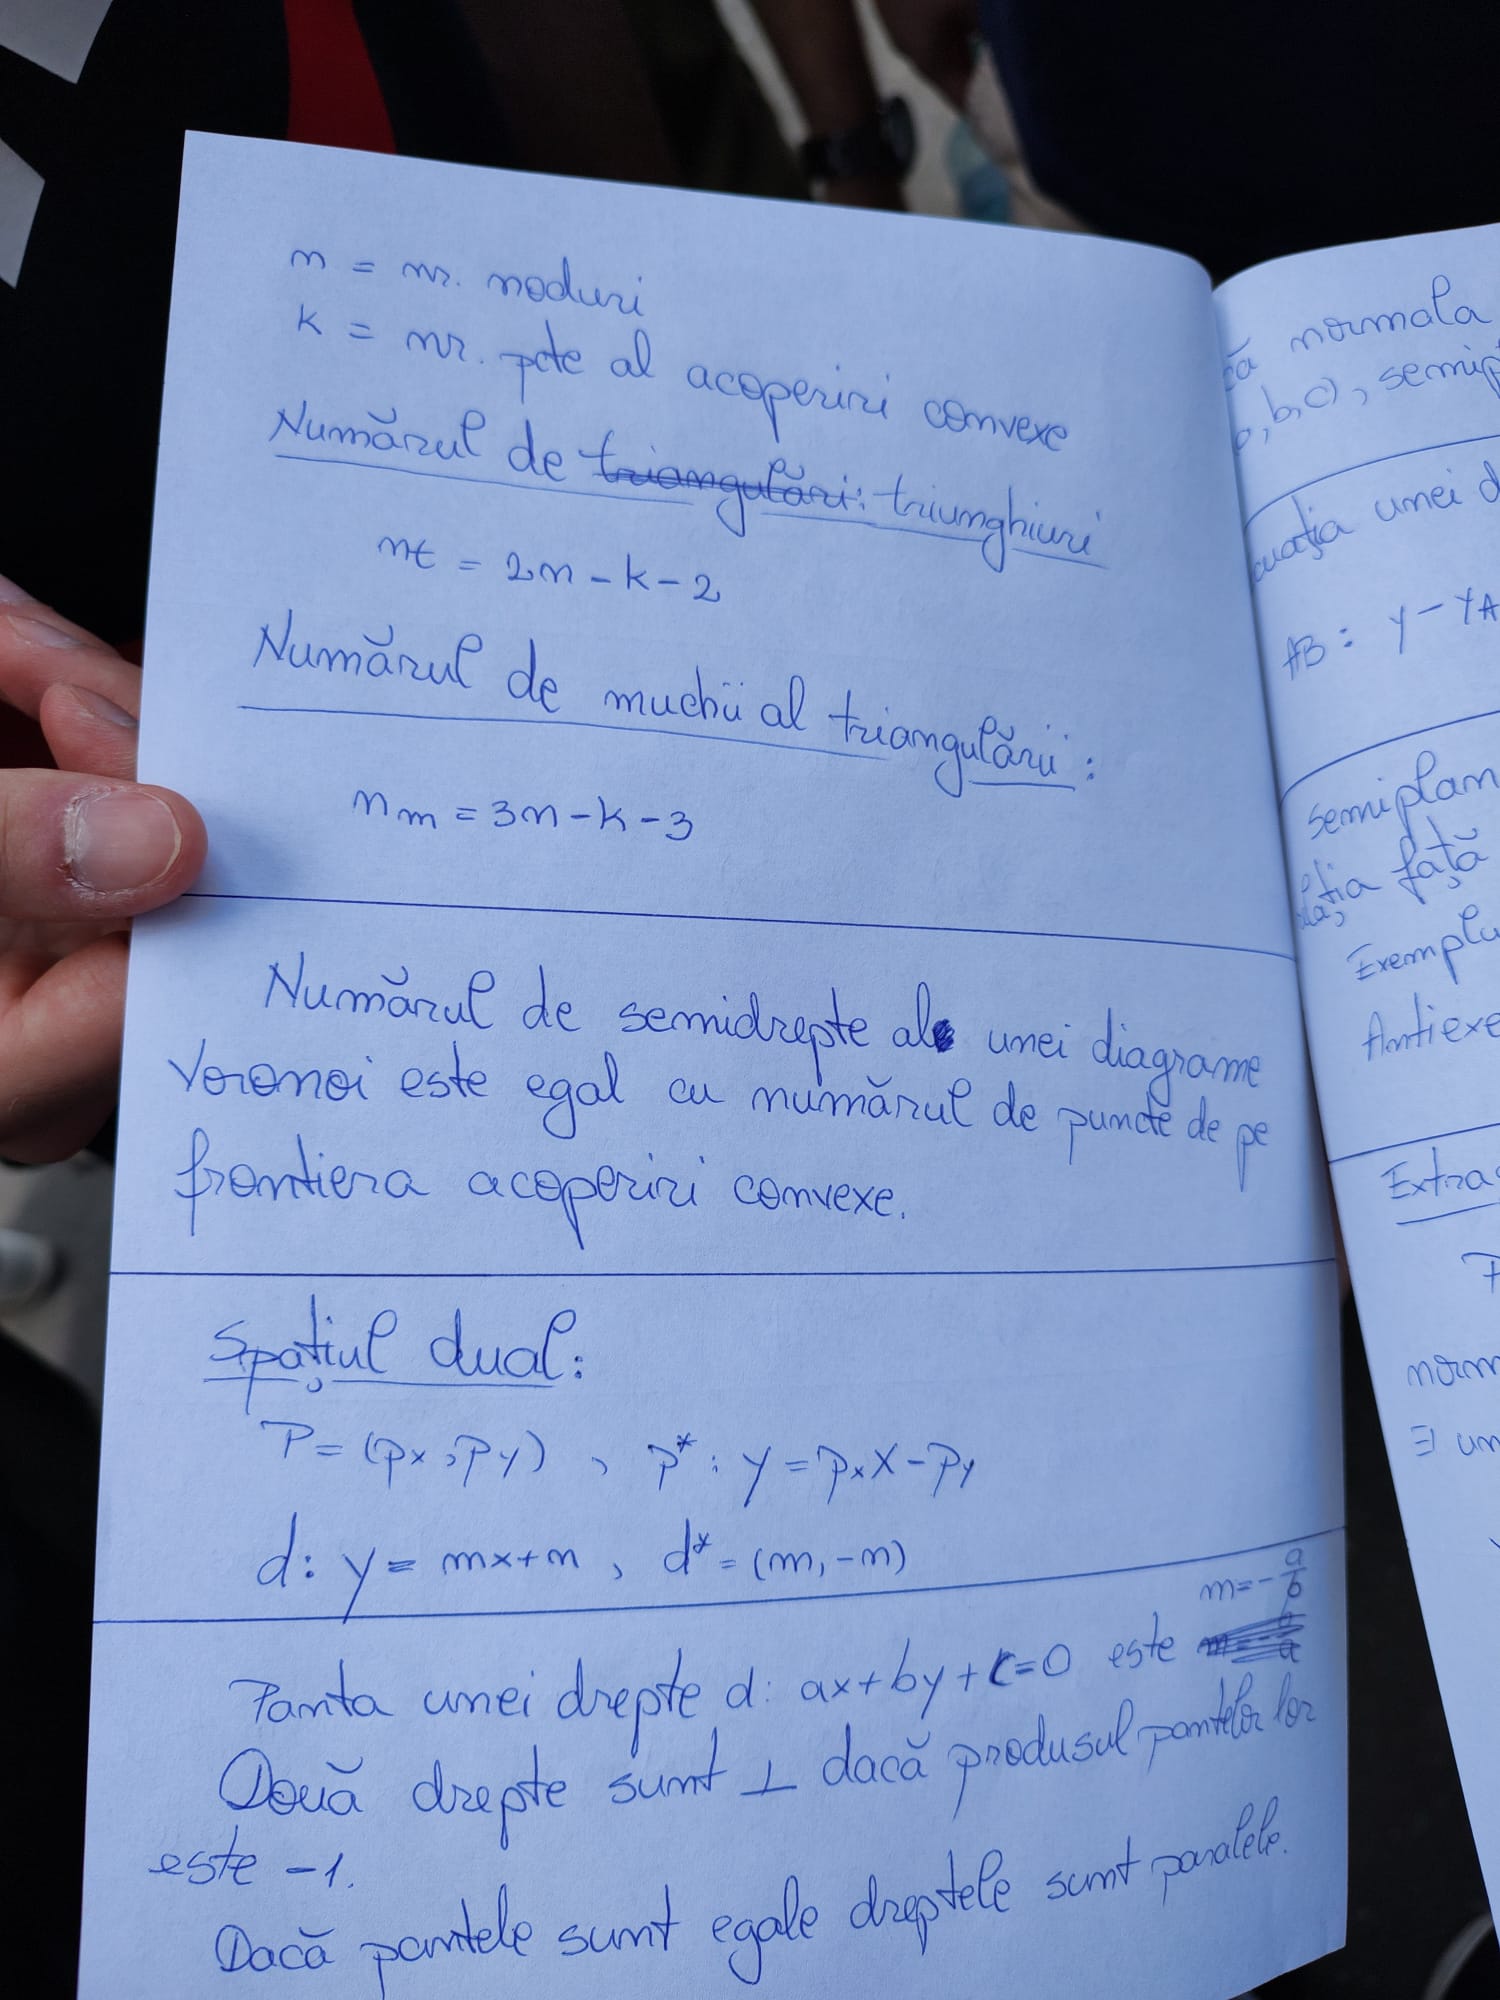 n = nr. noduri
k = nr. pcte al acoperiri convexe
Numărul de triangulări: triunghiuri
nt = 2n - k - 2
Numărul de muchii al triangulării:
nm = 3n - k - 3
Numărul de semidrepte al unei diagrame
Voronoi este egal cu numărul de puncte de pe
frontiera acoperiri convexe.
Spațiul dual:
P = (px, py) , p* : y = pxX - py
d: y = mx+n , d* = (m, -n)
m = - a/b
Panta unei drepte d: ax + by + c = 0 este
Două drepte sunt ⊥ dacă produsul pantelor lor
este -1.
Dacă pantele sunt egale dreptele sunt paralele.
că normala
b, c), semip
uația unei d
AB : y - yA
semiplan
față
Exemplu
Antiexe
Extra
norm
∃ un